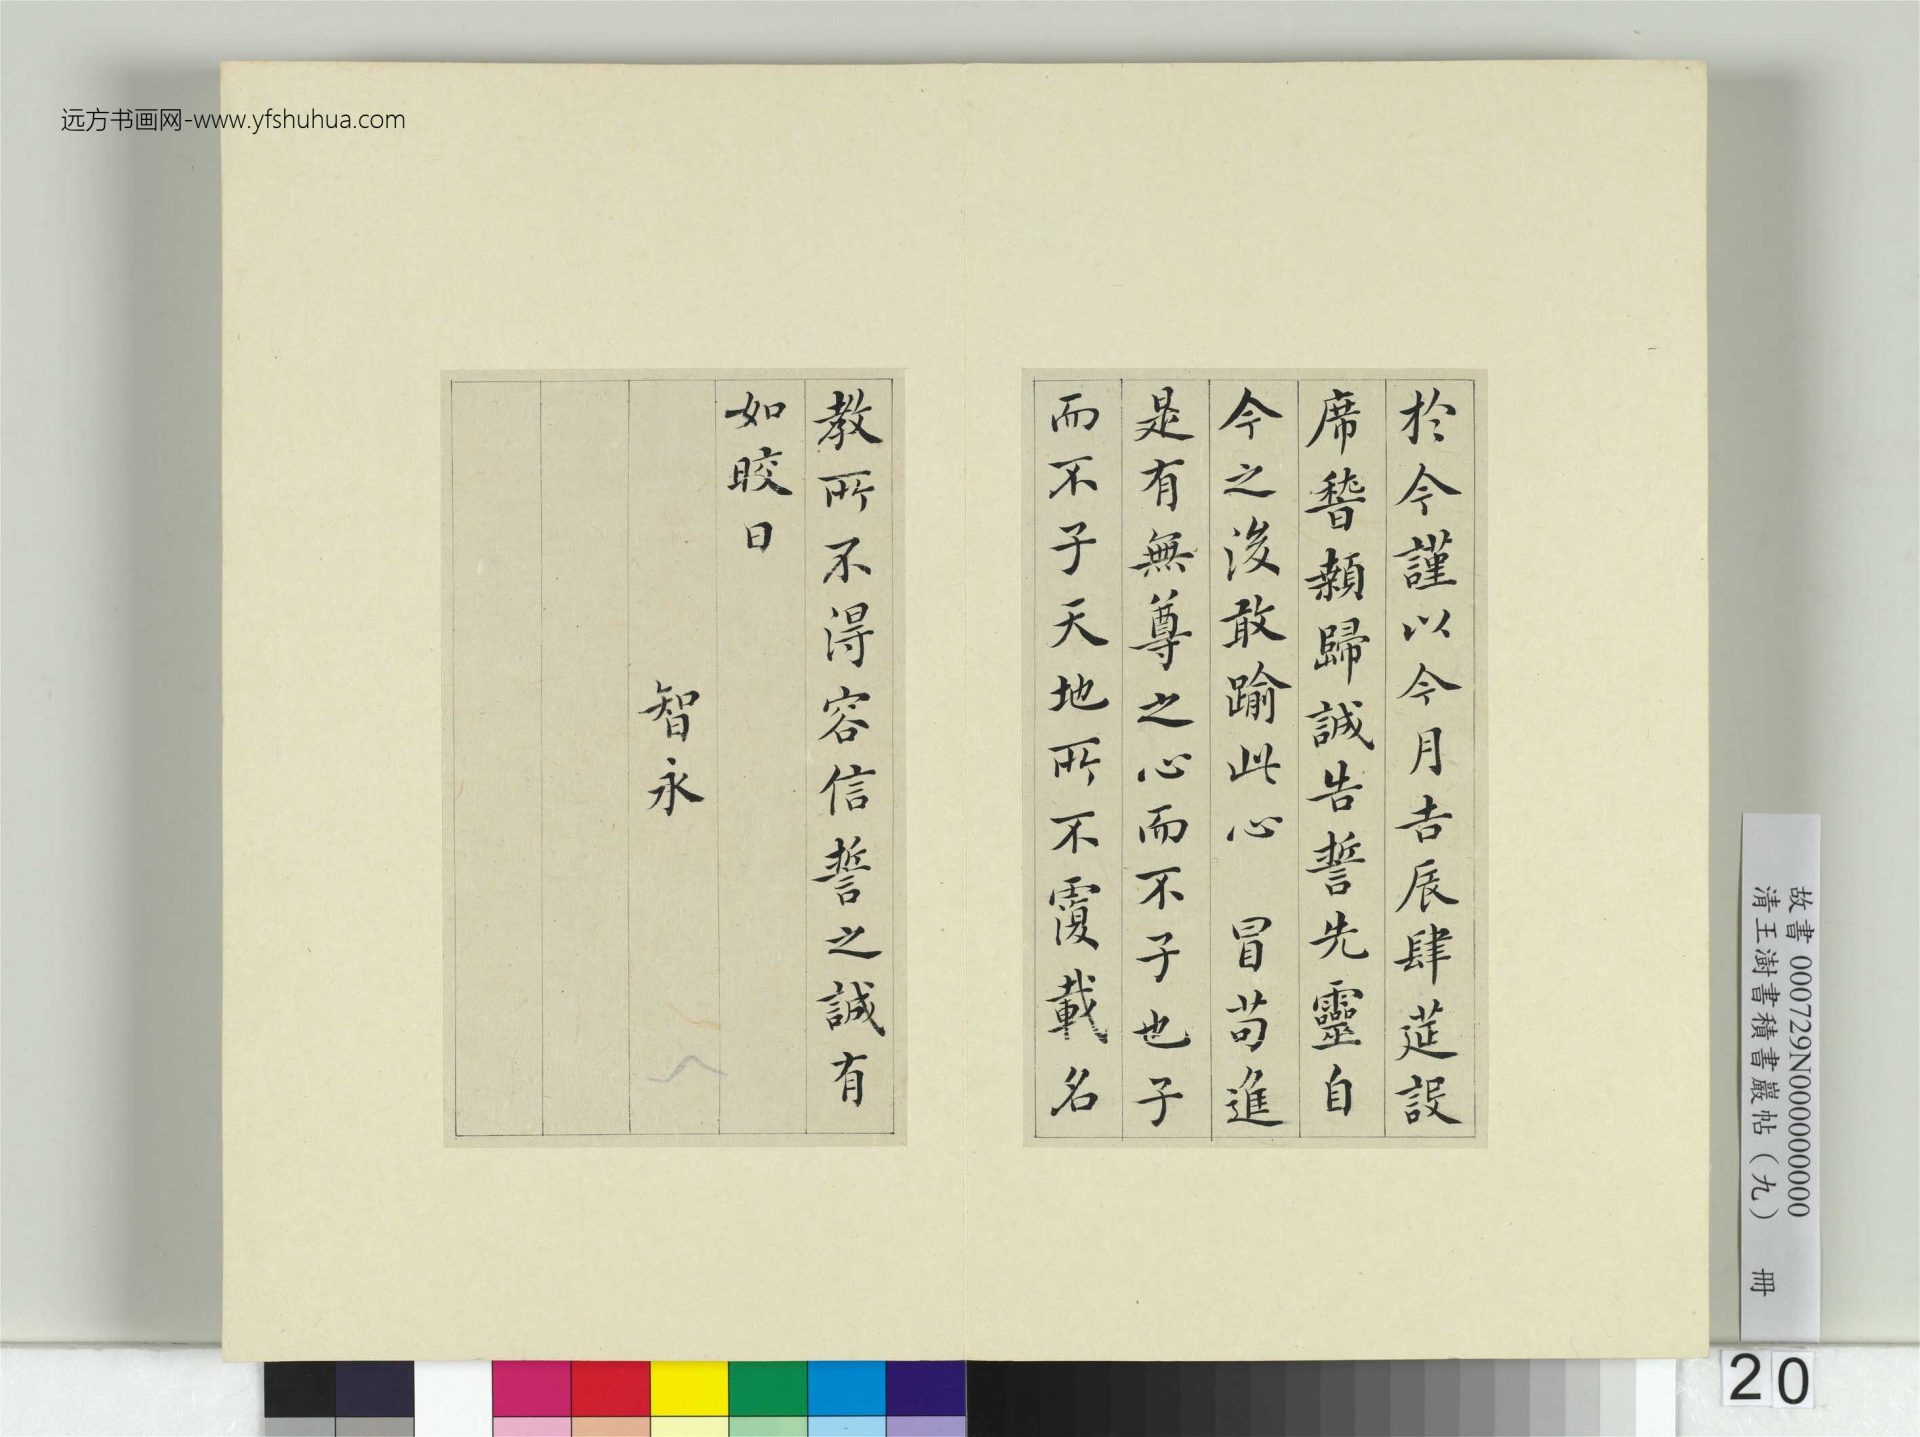 远方书画网-www.yfshuhua.com
於今謹以今月吉辰肆莚設
席稽顙歸誠告誓先靈自
今之後敢踰此心 冒苟進
是有無尊之心而不子也子
而不子天地所不覆載名
教所不得容信誓之誠有
如皎日
智永
故書 000729N000000000
清王澍書積書巖帖（九） 冊
20